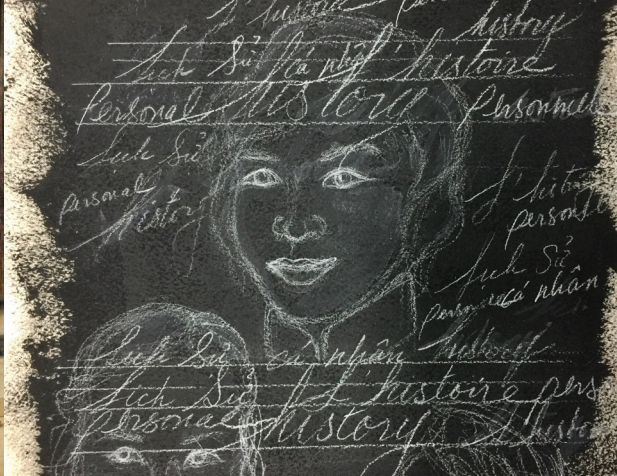 l'histoire per
history
Lịch Sử cá nhân l'histoire
Personal history Personnelle
Lịch Sử
personal
history
l'histo
personne
Lịch Sử
personnel cá nhân
Lịch Sử cá nhân history
Lịch Sử l'histoire pers
personal history l'histo